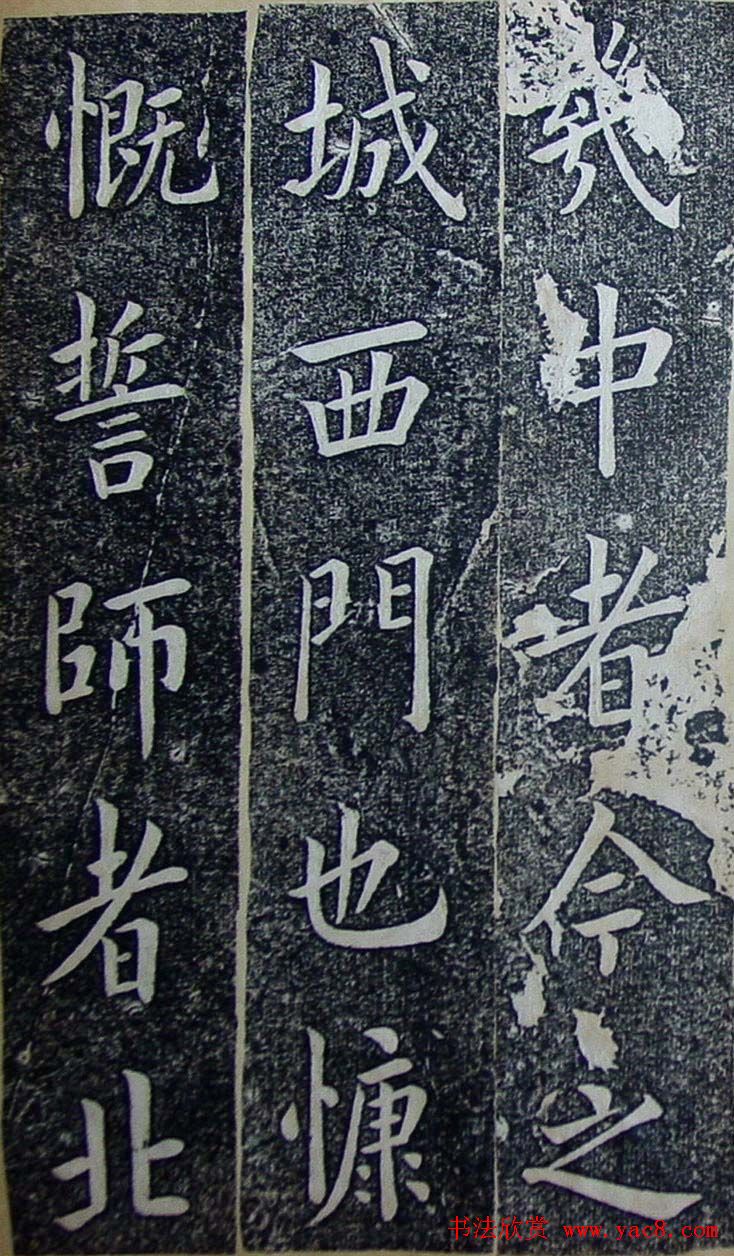 中者今之
城西門也慷
慨誓師者北
书法欣赏 www.yac8.com